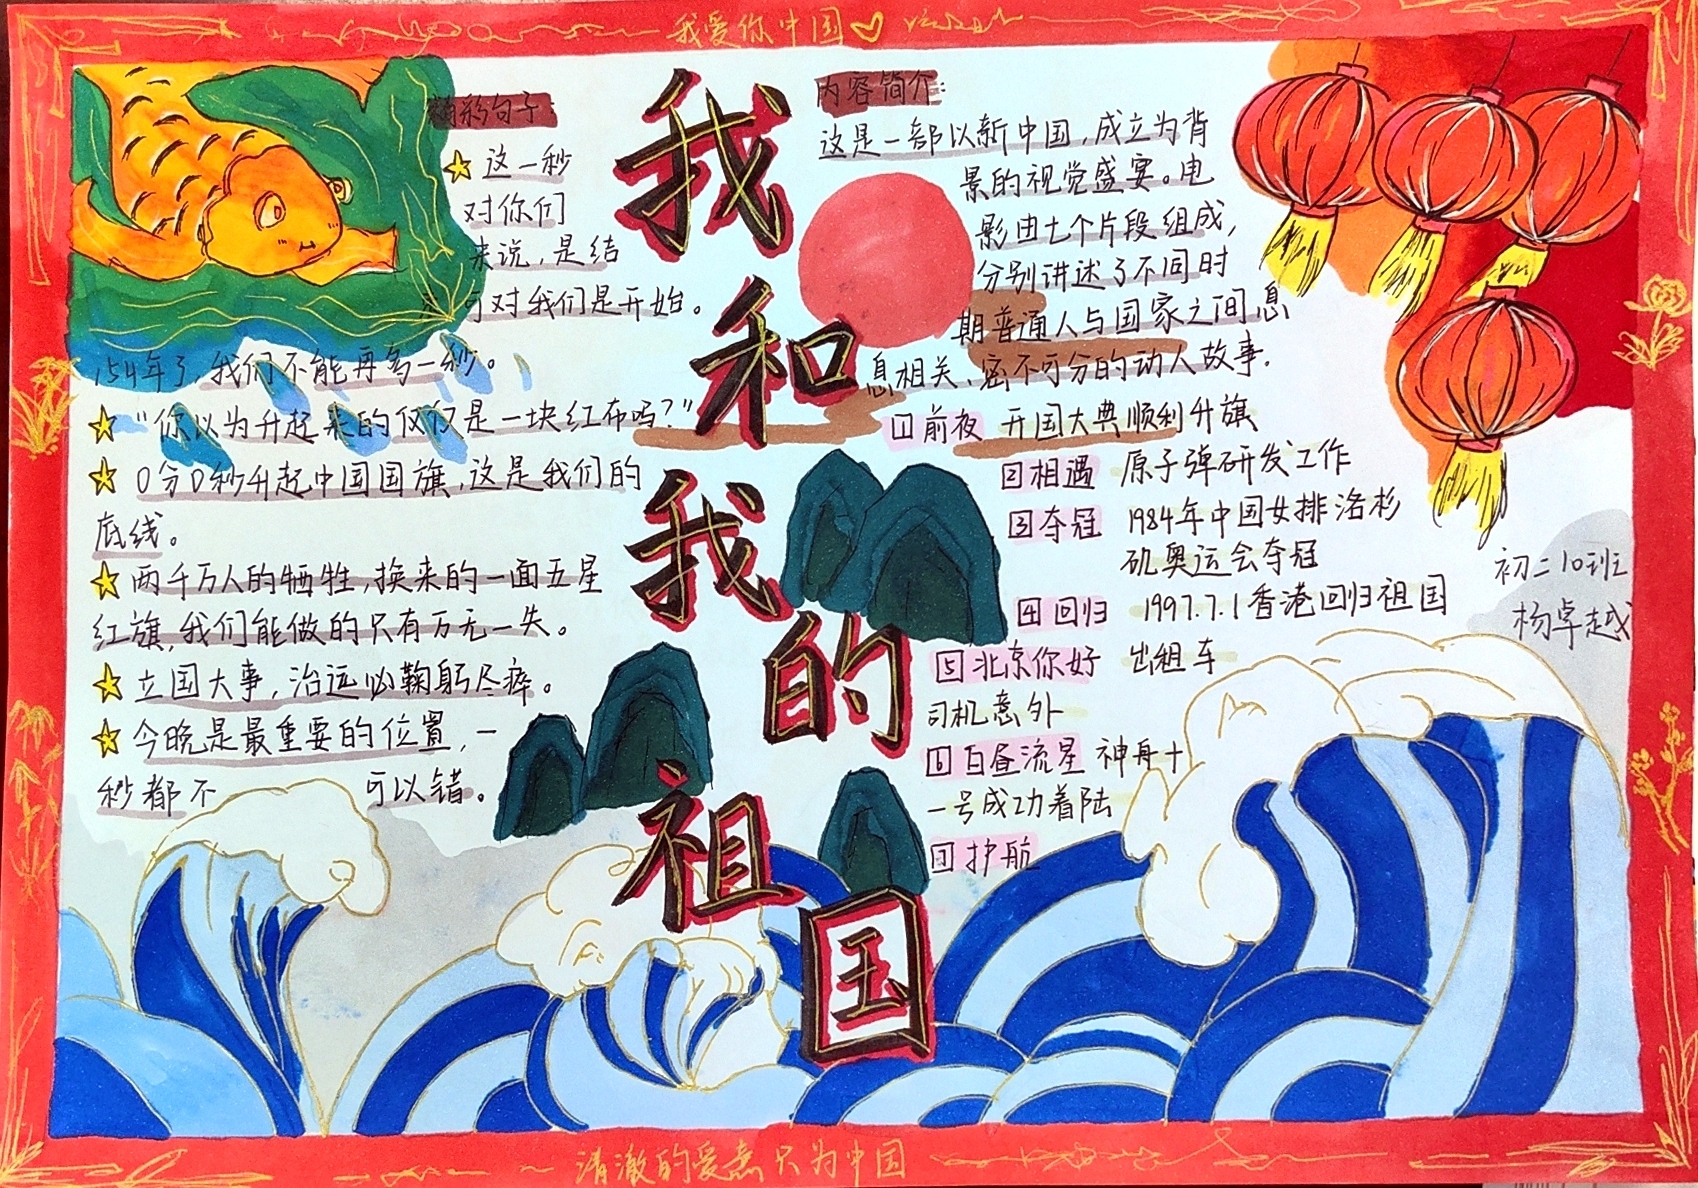 我爱你中国
我和我的祖国
精彩句子:
这一秒
对你们
来说,是结
可对我们是开始。
154年了,我们不能再多一秒。
"你以为升起来的仅仅是一块红布吗?"
0分0秒升起中国国旗,这是我们的
底线。
两千万人的牺牲,换来的一面五星
红旗,我们能做的只有万无一失。
立国大事,治远必鞠躬尽瘁。
今晚是最重要的位置,一
秒都不 可以错。
内容简介:
这是一部以新中国,成立为背
景的视觉盛宴。电
影由七个片段组成,
分别讲述了不同时
期普通人与国家之间息
息相关、密不可分的动人故事.
1 前夜 开国大典顺利升旗
2 相遇 原子弹研发工作
3 夺冠 1984年中国女排洛杉
矶奥运会夺冠
4 回归 1997.7.1香港回归祖国
5 北京你好 出租车
司机意外
6 白昼流星 神舟十
一号成功着陆
7 护航
初二10班
杨卓越
清澈的爱意只为中国